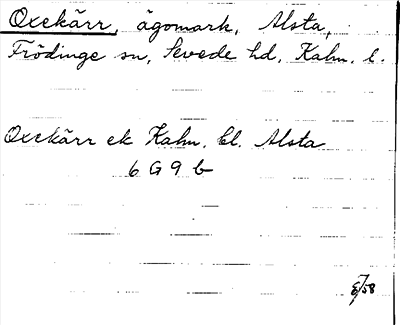 Oxekärr, ägomark, Alsta,
Frödinge sn, Sevede hd, Kalm. l.
Oxekärr ek Kalm. bl. Alsta
6 G 9 b